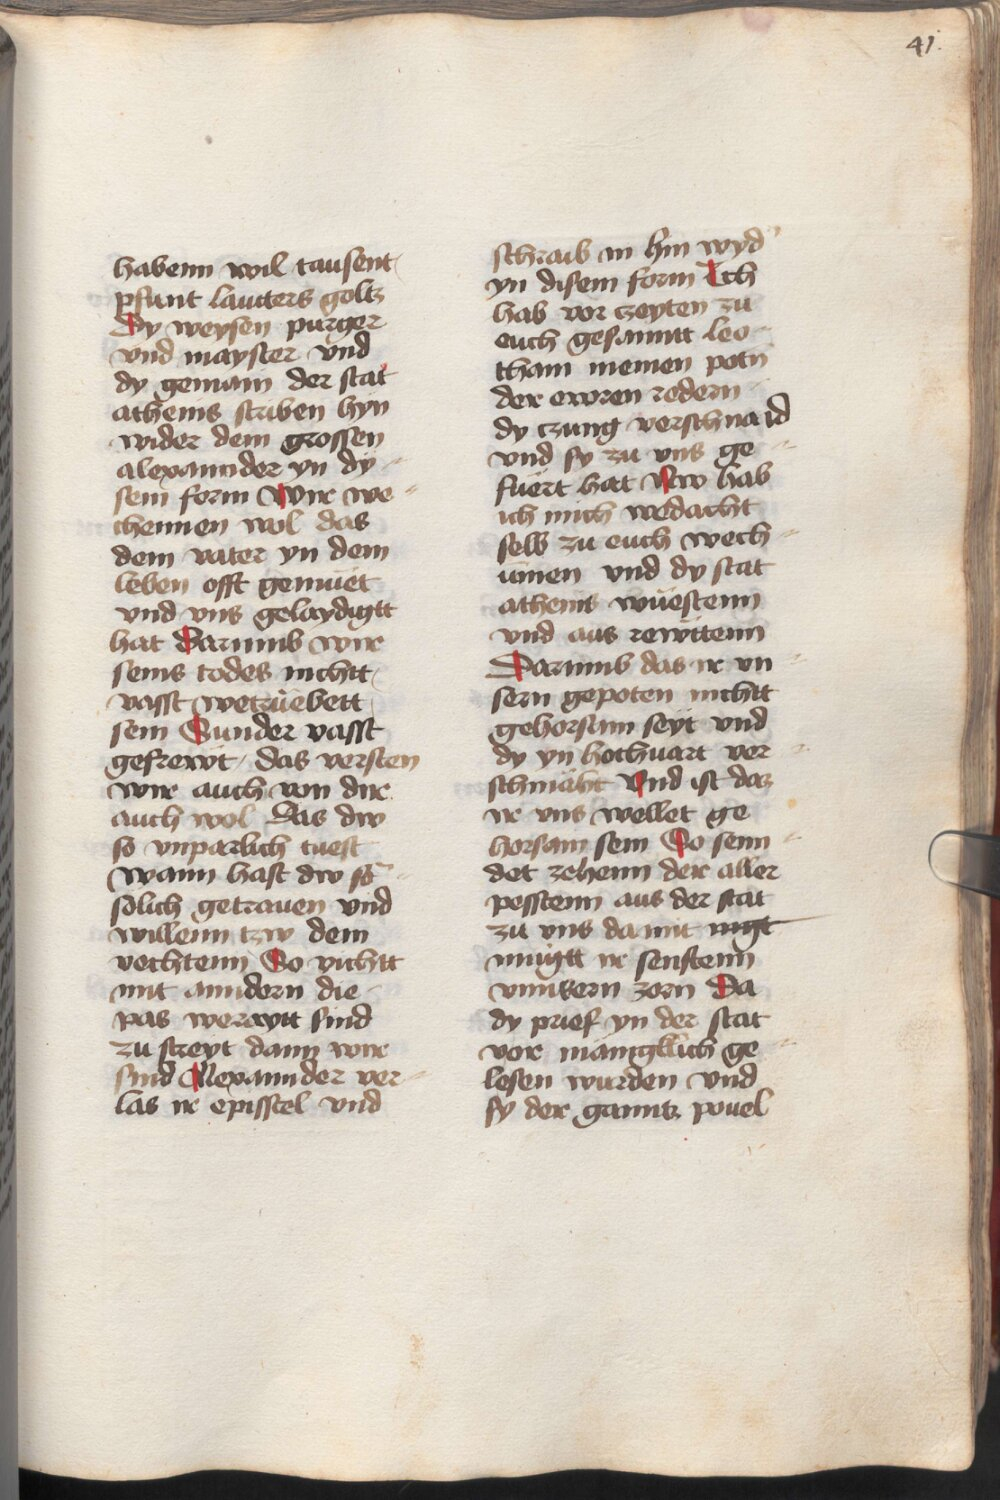 41.
habenn wil tausent
pfunt lautters goltz
Dy weysen purger
vnd mayster vnd
dy gemain der stat
athenis scriben hyn
wider dem grossen
alexannder yn dy
sem form Wir we
chennen wol das
dem vater yn dem
leben offt gemuet
vnd vns gelaydigtt
hat Darumb wir
seins todes nichtt
vasst wetruebett
sein Sunder vasst
gefrewt das versten
wir auch von dir
auch wol Das dw
so vnparlich tuest
wann hast dw so
solich getrauen vnd
willenn tzw dem
vechtenn So vichtt
mit anndern die
pas weraytt sind
zu streyt dann wir
sind Alexannder ver
las ir episstel vnd
schraib in hin wyd
yn disem form Ich
hab vor czeyten zu
euch gesanntt leo
tham meinen potn
der ewren redern
dy czung verschnaid
vnd sy zu vns ge
fuert hat Nw hab
ich mich wedacht
selb zu euch wech
umen vnd dy stat
athenis wuestenn
vnd aus rewttenn
Darumb das ir vn
sern gepoten nichtt
gehorsam seyt vnd
dy yn hochuart ver
schmächt Vnd ist das
ir vns wellet ge
horsam sein So senn
det zehenn der aller
pesstenn aus der stat
zu vns damit mgt
mugtt ir senftenn
vnnsern zorn Da
dy prief yn der stat
vor mänigklich ge
lesen wurden vnd
sy der ganntz pouel